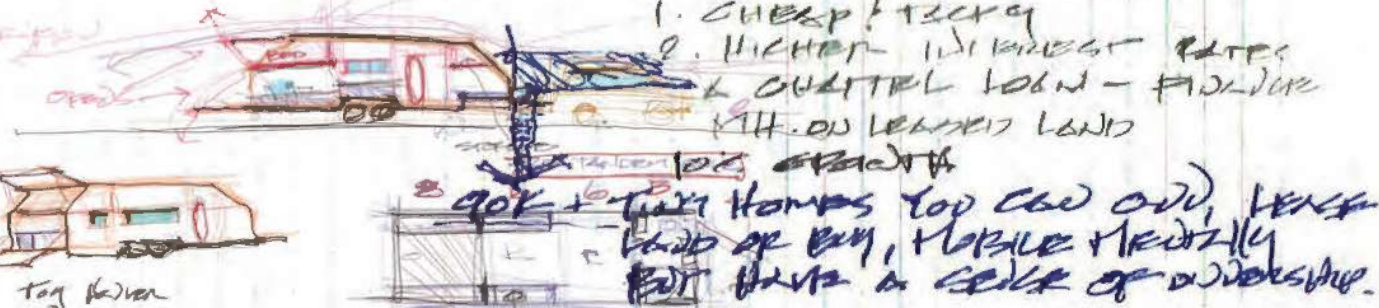 1. CHEAP! TACKY
2. HIGHER INTEREST RATES
A CHATTEL LOAN - FINANCE
MH. ON LEASED LAND
OPENS
BED
10% GROWTH
8 6 8
90K + TINY HOMES YOU CAN OWN, LEASE
LAND OR BUY, MOBILE MENTALLY
BUT HAVE A SENSE OF OWNERSHIP.